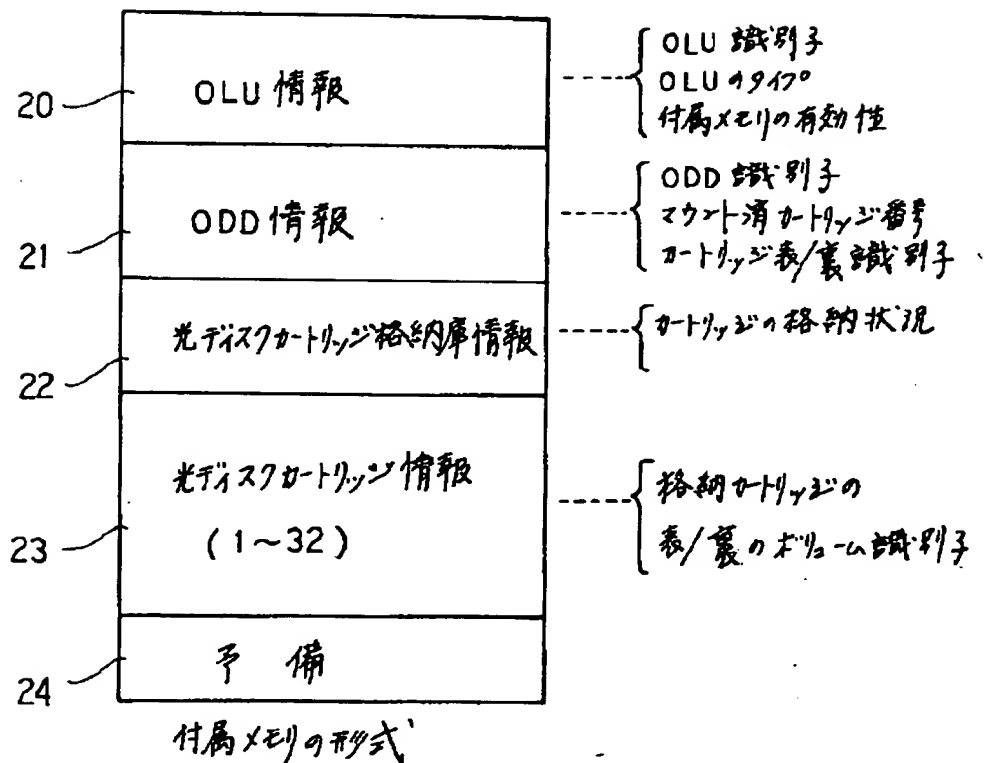 20 OLU 情報
OLU 識別子
OLUのタイプ
付属メモリの有効性
21 ODD 情報
ODD 識別子
マウント済カートリッジ番号
カートリッジ表/裏識別子
22 光ディスクカートリッジ格納庫情報
カートリッジの格納状況
23 光ディスクカートリッジ情報
(1~32)
格納カートリッジの
表/裏のボリューム識別子
24 予 備
付属メモリの形式